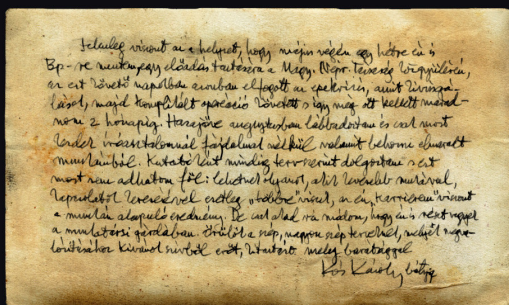 Jelenleg viszont az a helyzet, hogy május végén egy hétre én is
Bp-re mentem egy előadás tartására a Magy. Népr. Társaság közgyűlésén,
az ezt követő napokban azonban elfogott az epekövem, amit
majd komplikált operáció követett s így meg ott kellett marad-
nom 2 hónapig. Hazajőve augusztusban lábbadoztam és csak most
kezdek íróasztalomnál fájdalmak nélkül valamit behozni elmaradt
munkáimból. Kutatóként mindig tervszerűen dolgoztam s ezt
most nem adhatom föl: lehetnek olyanok, akik kevesebb munkával,
"többre" visznek, az én "karrierem" viszont
a munkán alapuló eredmény. De ez alkal
a munkatársi gárdában. Örülök a szép, nagyon szép tervednek, melynek megva-
lósításához kívánok szívből erőt, kitartást. meleg barátsággal
Kós Károly bátyád